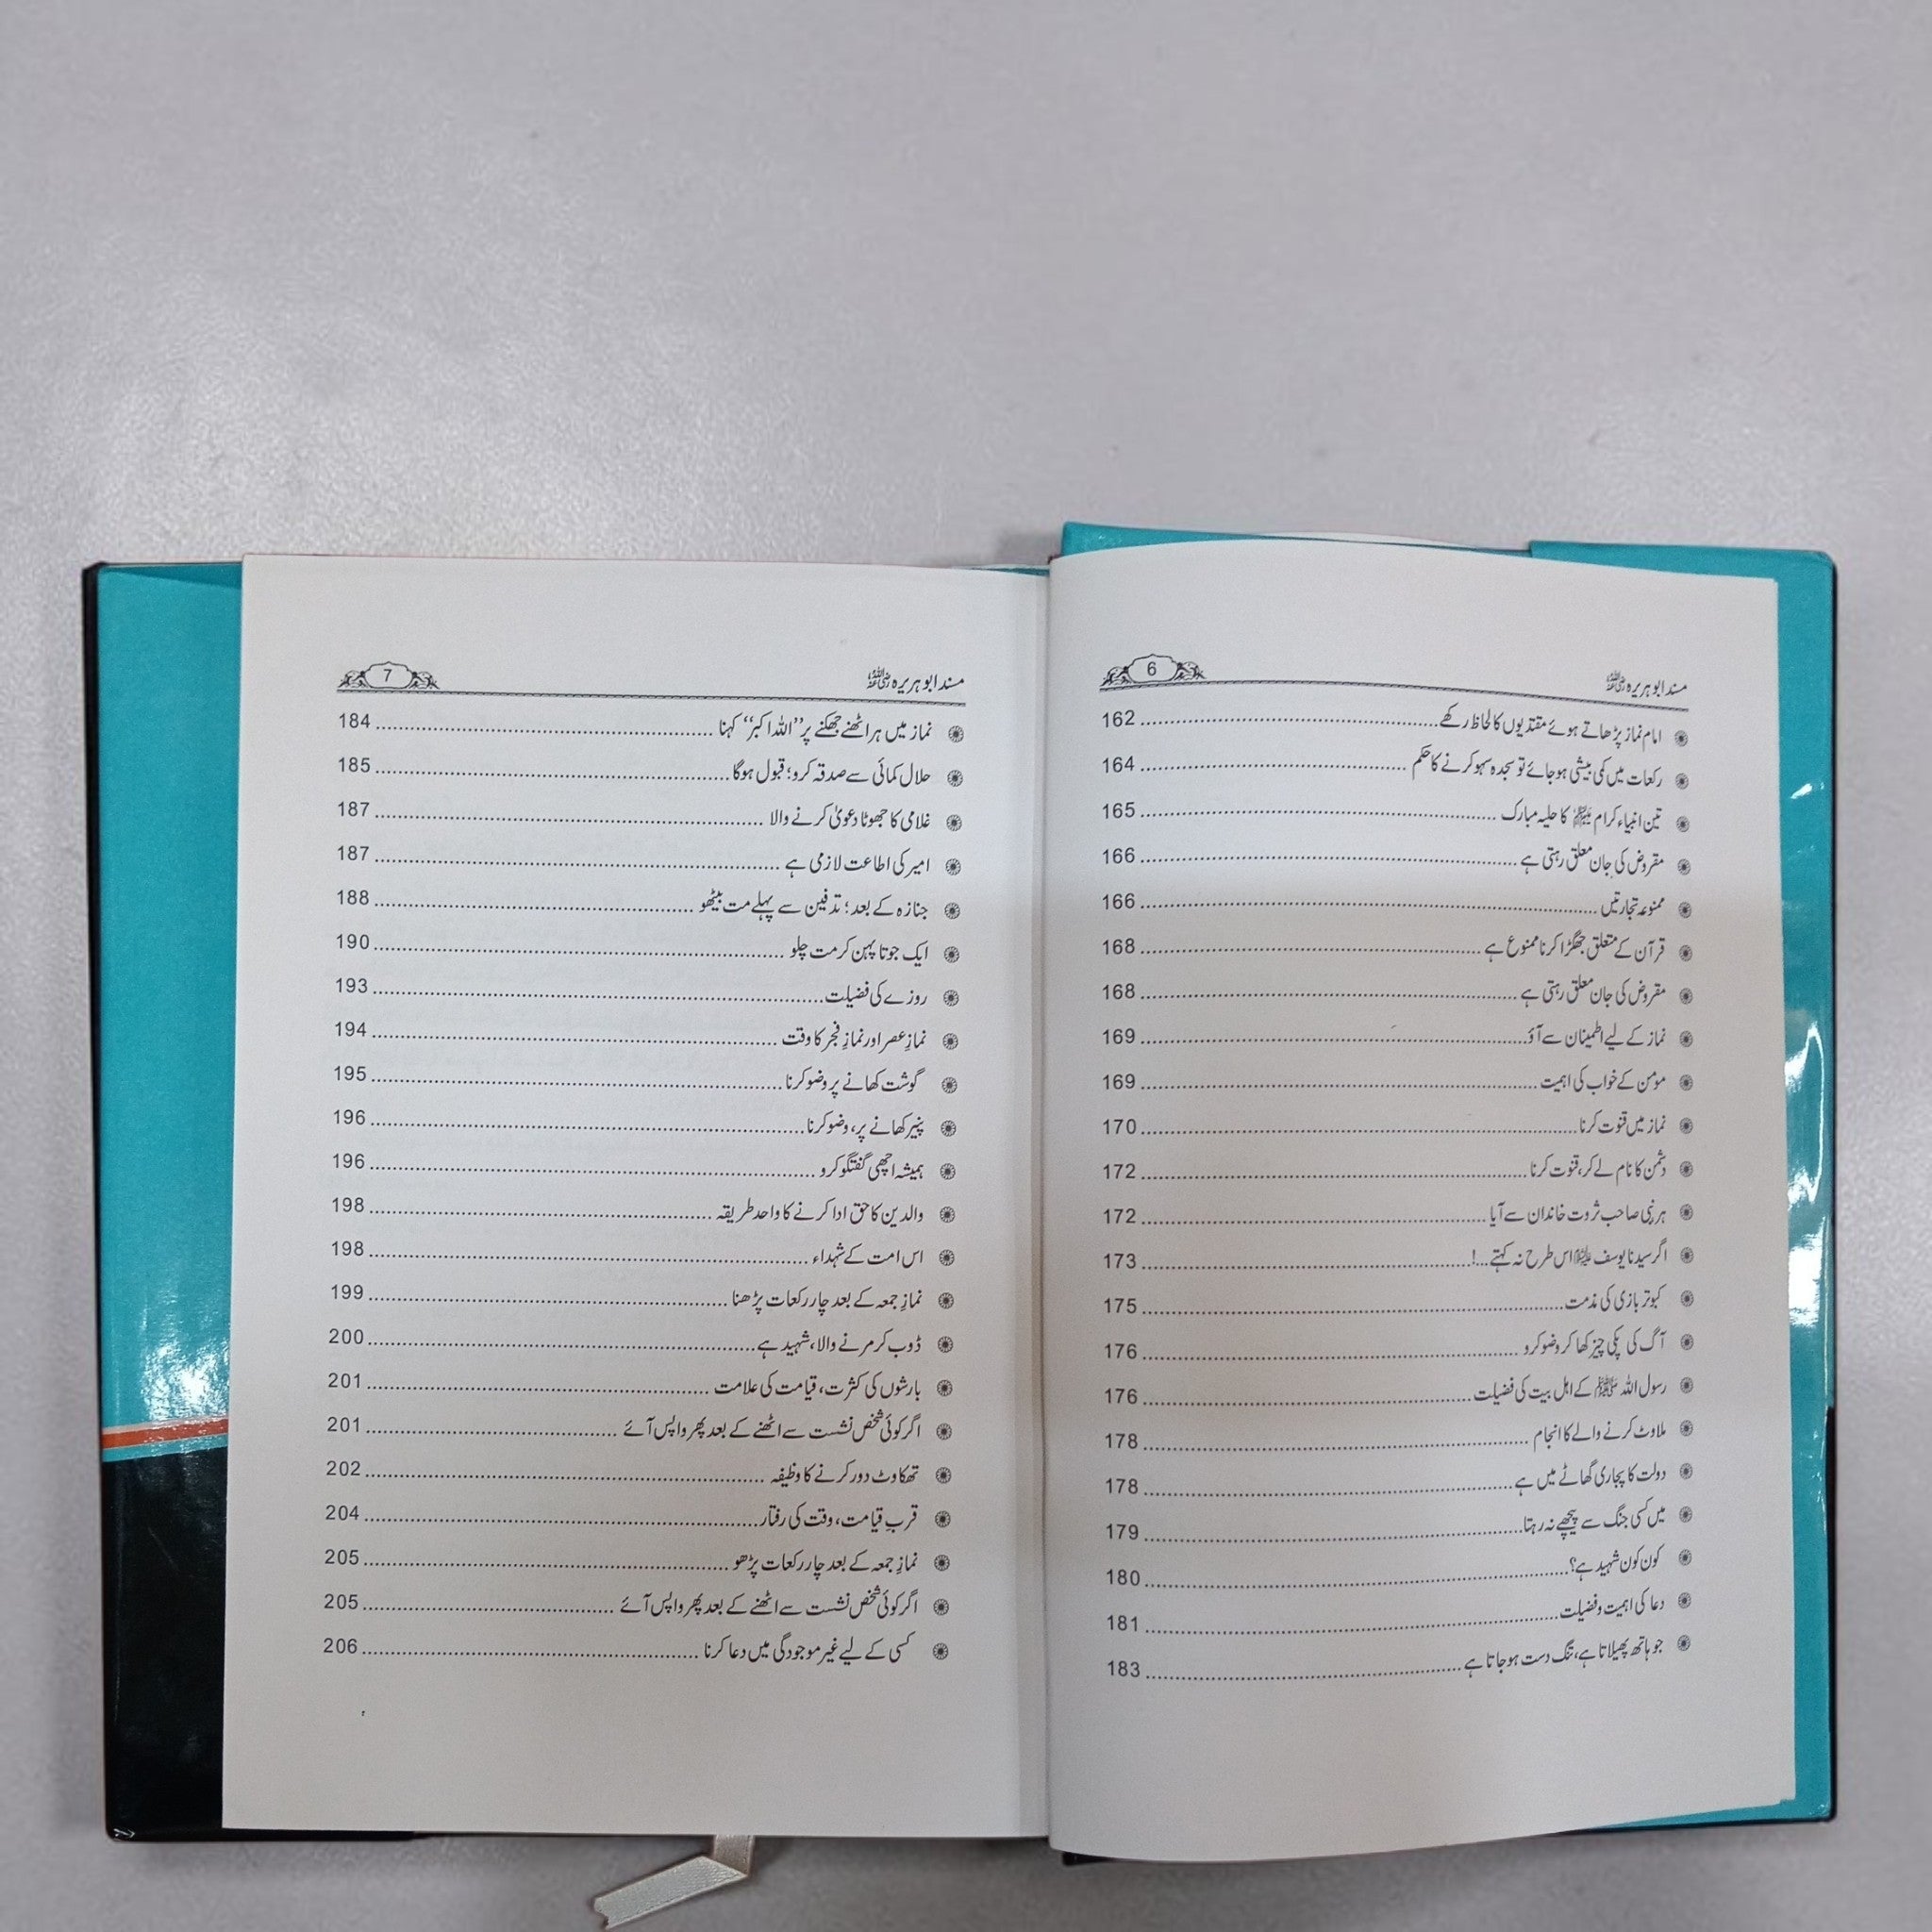 مسند ابو ہریرہ رضی اللہ عنہ 6
امام نماز پڑھاتے ہوئے مقتدیوں کا لحاظ رکھے 162
رکعات میں کمی بیشی ہو جائے تو سجدہ سہو کرنے کا حکم 164
تین انبیاء کرام علیہم السلام کا حلیہ مبارک 165
مقروض کی جان معلق رہتی ہے 166
ممنوعہ تجارتیں 166
قرآن کے متعلق جھگڑا کرنا ممنوع ہے 168
مقروض کی جان معلق رہتی ہے 168
نماز کے لیے اطمینان سے آؤ 169
مومن کے خواب کی اہمیت 169
نماز میں قنوت کرنا 170
دشمن کا نام لے کر، قنوت کرنا 172
ہر نبی صاحب ثروت خاندان سے آیا 172
اگر سیدنا یوسف علیہ السلام اس طرح نہ کہتے...! 173
کبوتر بازی کی مذمت 175
آگ کی پکی چیز کھا کر وضو کرو 176
رسول اللہ ﷺ کے اہل بیت کی فضیلت 176
ملاوٹ کرنے والے کا انجام 178
دولت کا پجاری گھاٹے میں ہے 178
میں کسی جنگ سے پیچھے نہ رہتا 179
کون کون شہید ہے؟ 180
دعا کی اہمیت و فضیلت 181
جو ہاتھ پھیلاتا ہے، تنگ دست ہو جاتا ہے 183
مسند ابو ہریرہ رضی اللہ عنہ 7
نماز میں ہر اٹھنے جھکنے پر ”اللہ اکبر“ کہنا 184
حلال کمائی سے صدقہ کرو؛ قبول ہوگا 185
غلامی کا جھوٹا دعویٰ کرنے والا 187
امیر کی اطاعت لازمی ہے 187
جنازہ کے بعد؛ تدفین سے پہلے مت بیٹھو 188
ایک جوتا پہن کر مت چلو 190
روزے کی فضیلت 193
نمازِ عصر اور نمازِ فجر کا وقت 194
گوشت کھانے پر وضو کرنا 195
پنیر کھانے پر، وضو کرنا 196
ہمیشہ اچھی گفتگو کرو 196
والدین کا حق ادا کرنے کا واحد طریقہ 198
اس امت کے شہداء 198
نمازِ جمعہ کے بعد چار رکعات پڑھنا 199
ڈوب کر مرنے والا، شہید ہے 200
بارشوں کی کثرت، قیامت کی علامت 201
اگر کوئی شخص نشست سے اٹھنے کے بعد پھر واپس آئے 201
تھکاوٹ دور کرنے کا وظیفہ 202
قربِ قیامت، وقت کی رفتار 204
نمازِ جمعہ کے بعد چار رکعات پڑھو 205
اگر کوئی شخص نشست سے اٹھنے کے بعد پھر واپس آئے 205
کسی کے لیے غیر موجودگی میں دعا کرنا 206